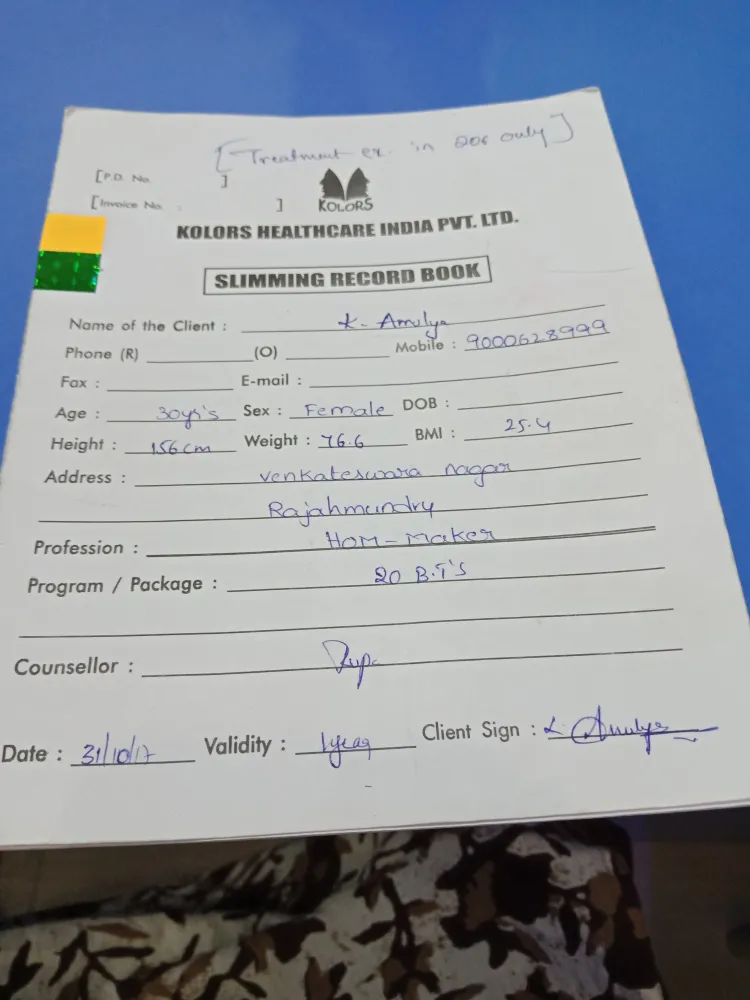 [Treatment in 206 only]
[P.D. No. ]
[Invoice No. ]
KOLORS
KOLORS HEALTHCARE INDIA PVT. LTD.
SLIMMING RECORD BOOK
Name of the Client : K. Amulya
Phone (R) (O) Mobile : 9000628999
Fax : E-mail :
Age : 30yr's Sex : Female DOB :
Height : 156cm Weight : 76.6 BMI : 25.4
Address : Venkateswara nagar
Rajahmundry
Profession : HOM-Maker
Program / Package : 20 B.T'S
Counsellor :
Date : 31/10/17 Validity : 1year Client Sign : K. Amulya